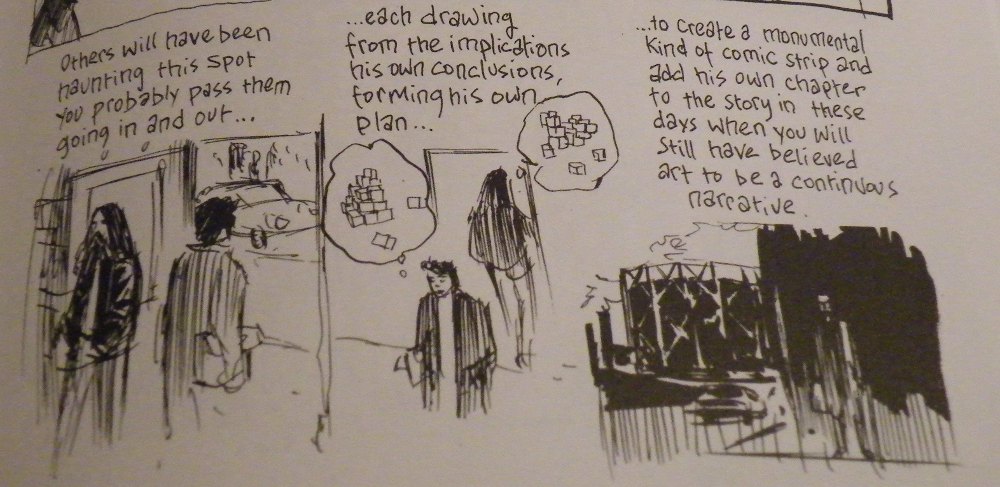 Others will have been
haunting this spot
you probably pass them
going in and out...
...each drawing
from the implications
his own conclusions,
forming his own
plan...
...to create a monumental
kind of comic strip and
add his own chapter
to the story in these
days when you will
still have believed
art to be a continuous
narrative.